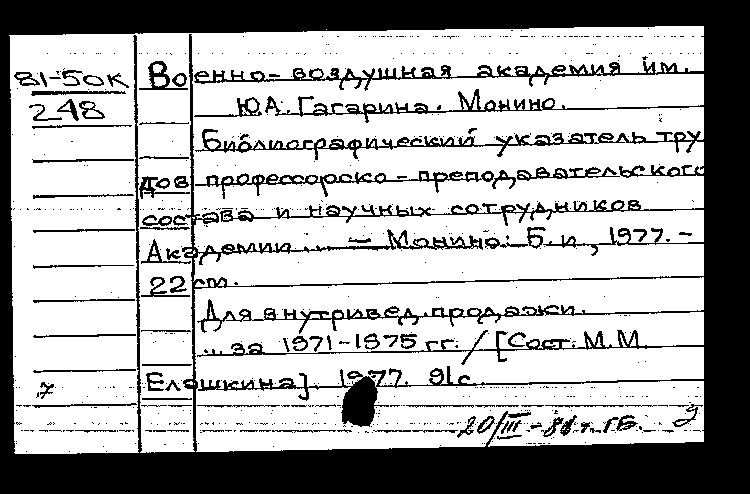 81-50К
248
Военно-воздушная академия им.
Ю.А. Гагарина. Монино.
Библиографический указатель тру
дов профессорско-преподавательского
состава и научных сотрудников
Академии... — Монино: Б.и, 1977. -
22 см.
Для внутривед. продажи.
... за 1971-1975 гг. / [Сост. М.М.
Елошкина]. 1977. 91с.
20/III-81 г. ГБ.